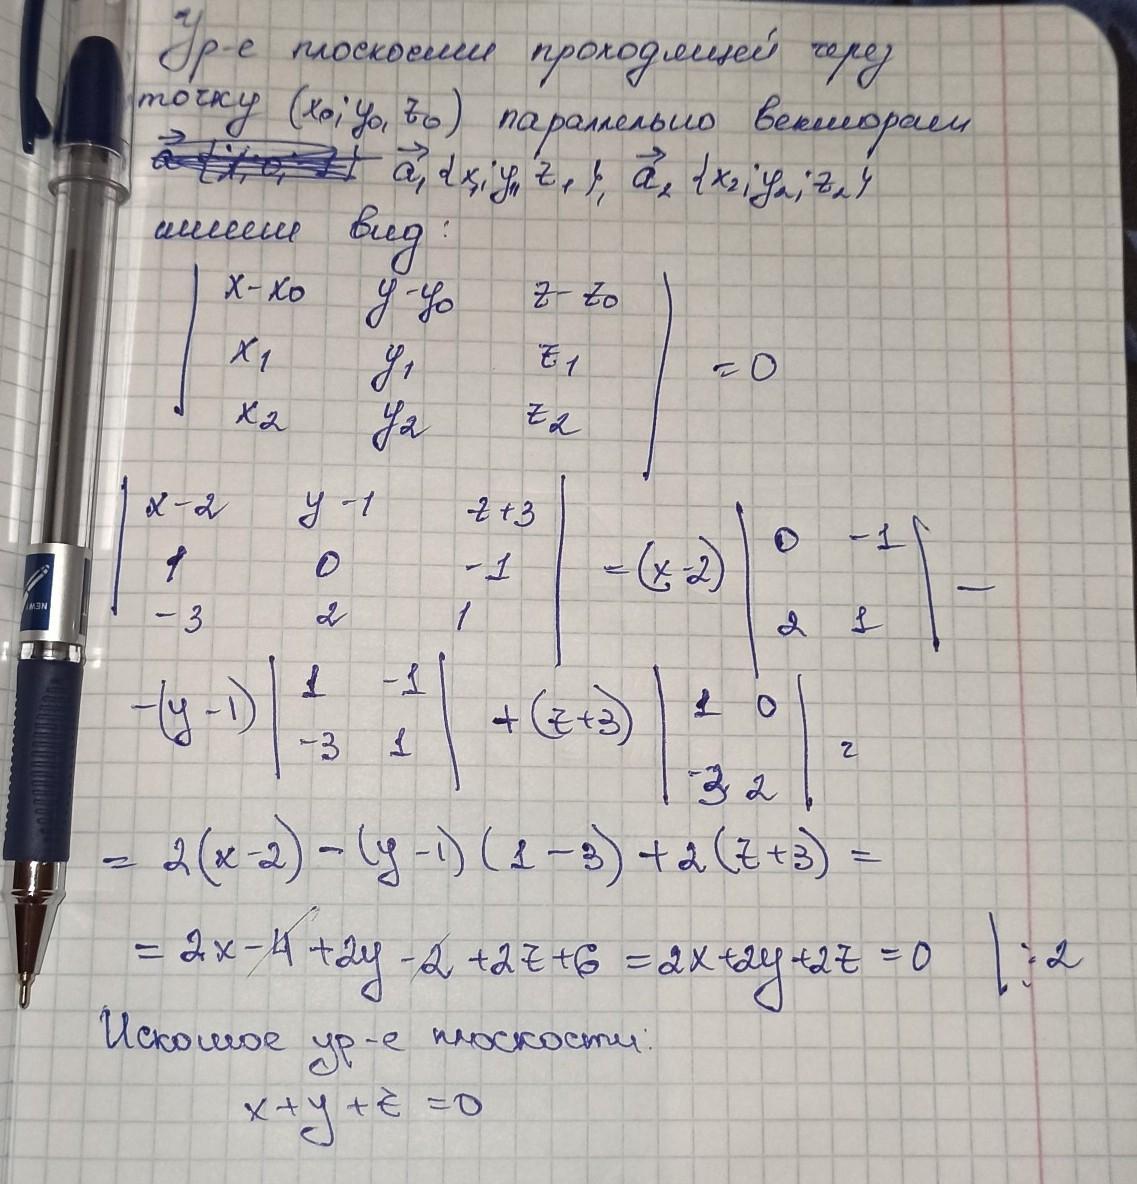 Ур-е плоскости проходящей через
точку (x₀; y₀, z₀) параллельно векторам
a⃗₁ {x₁; y₁, z₁}, a⃗₂ {x₂; y₂; z₂}
имеет вид:
| x-x₀ y-y₀ z-z₀ |
| x₁ y₁ z₁ | = 0
| x₂ y₂ z₂ |
| x-2 y-1 z+3 | | 0 -1 |
| 1 0 -1 | = (x-2) | | -
| -3 2 1 | | 2 1 |
-(y-1) | 1 -1 | + (z+3) | 1 0 | =
| -3 1 | | -3 2 |
= 2(x-2) - (y-1)(1-3) + 2(z+3) =
= 2x-4+2y-2+2z+6 = 2x+2y+2z = 0 | :2
Искомое ур-е плоскости:
x+y+z = 0
NEW